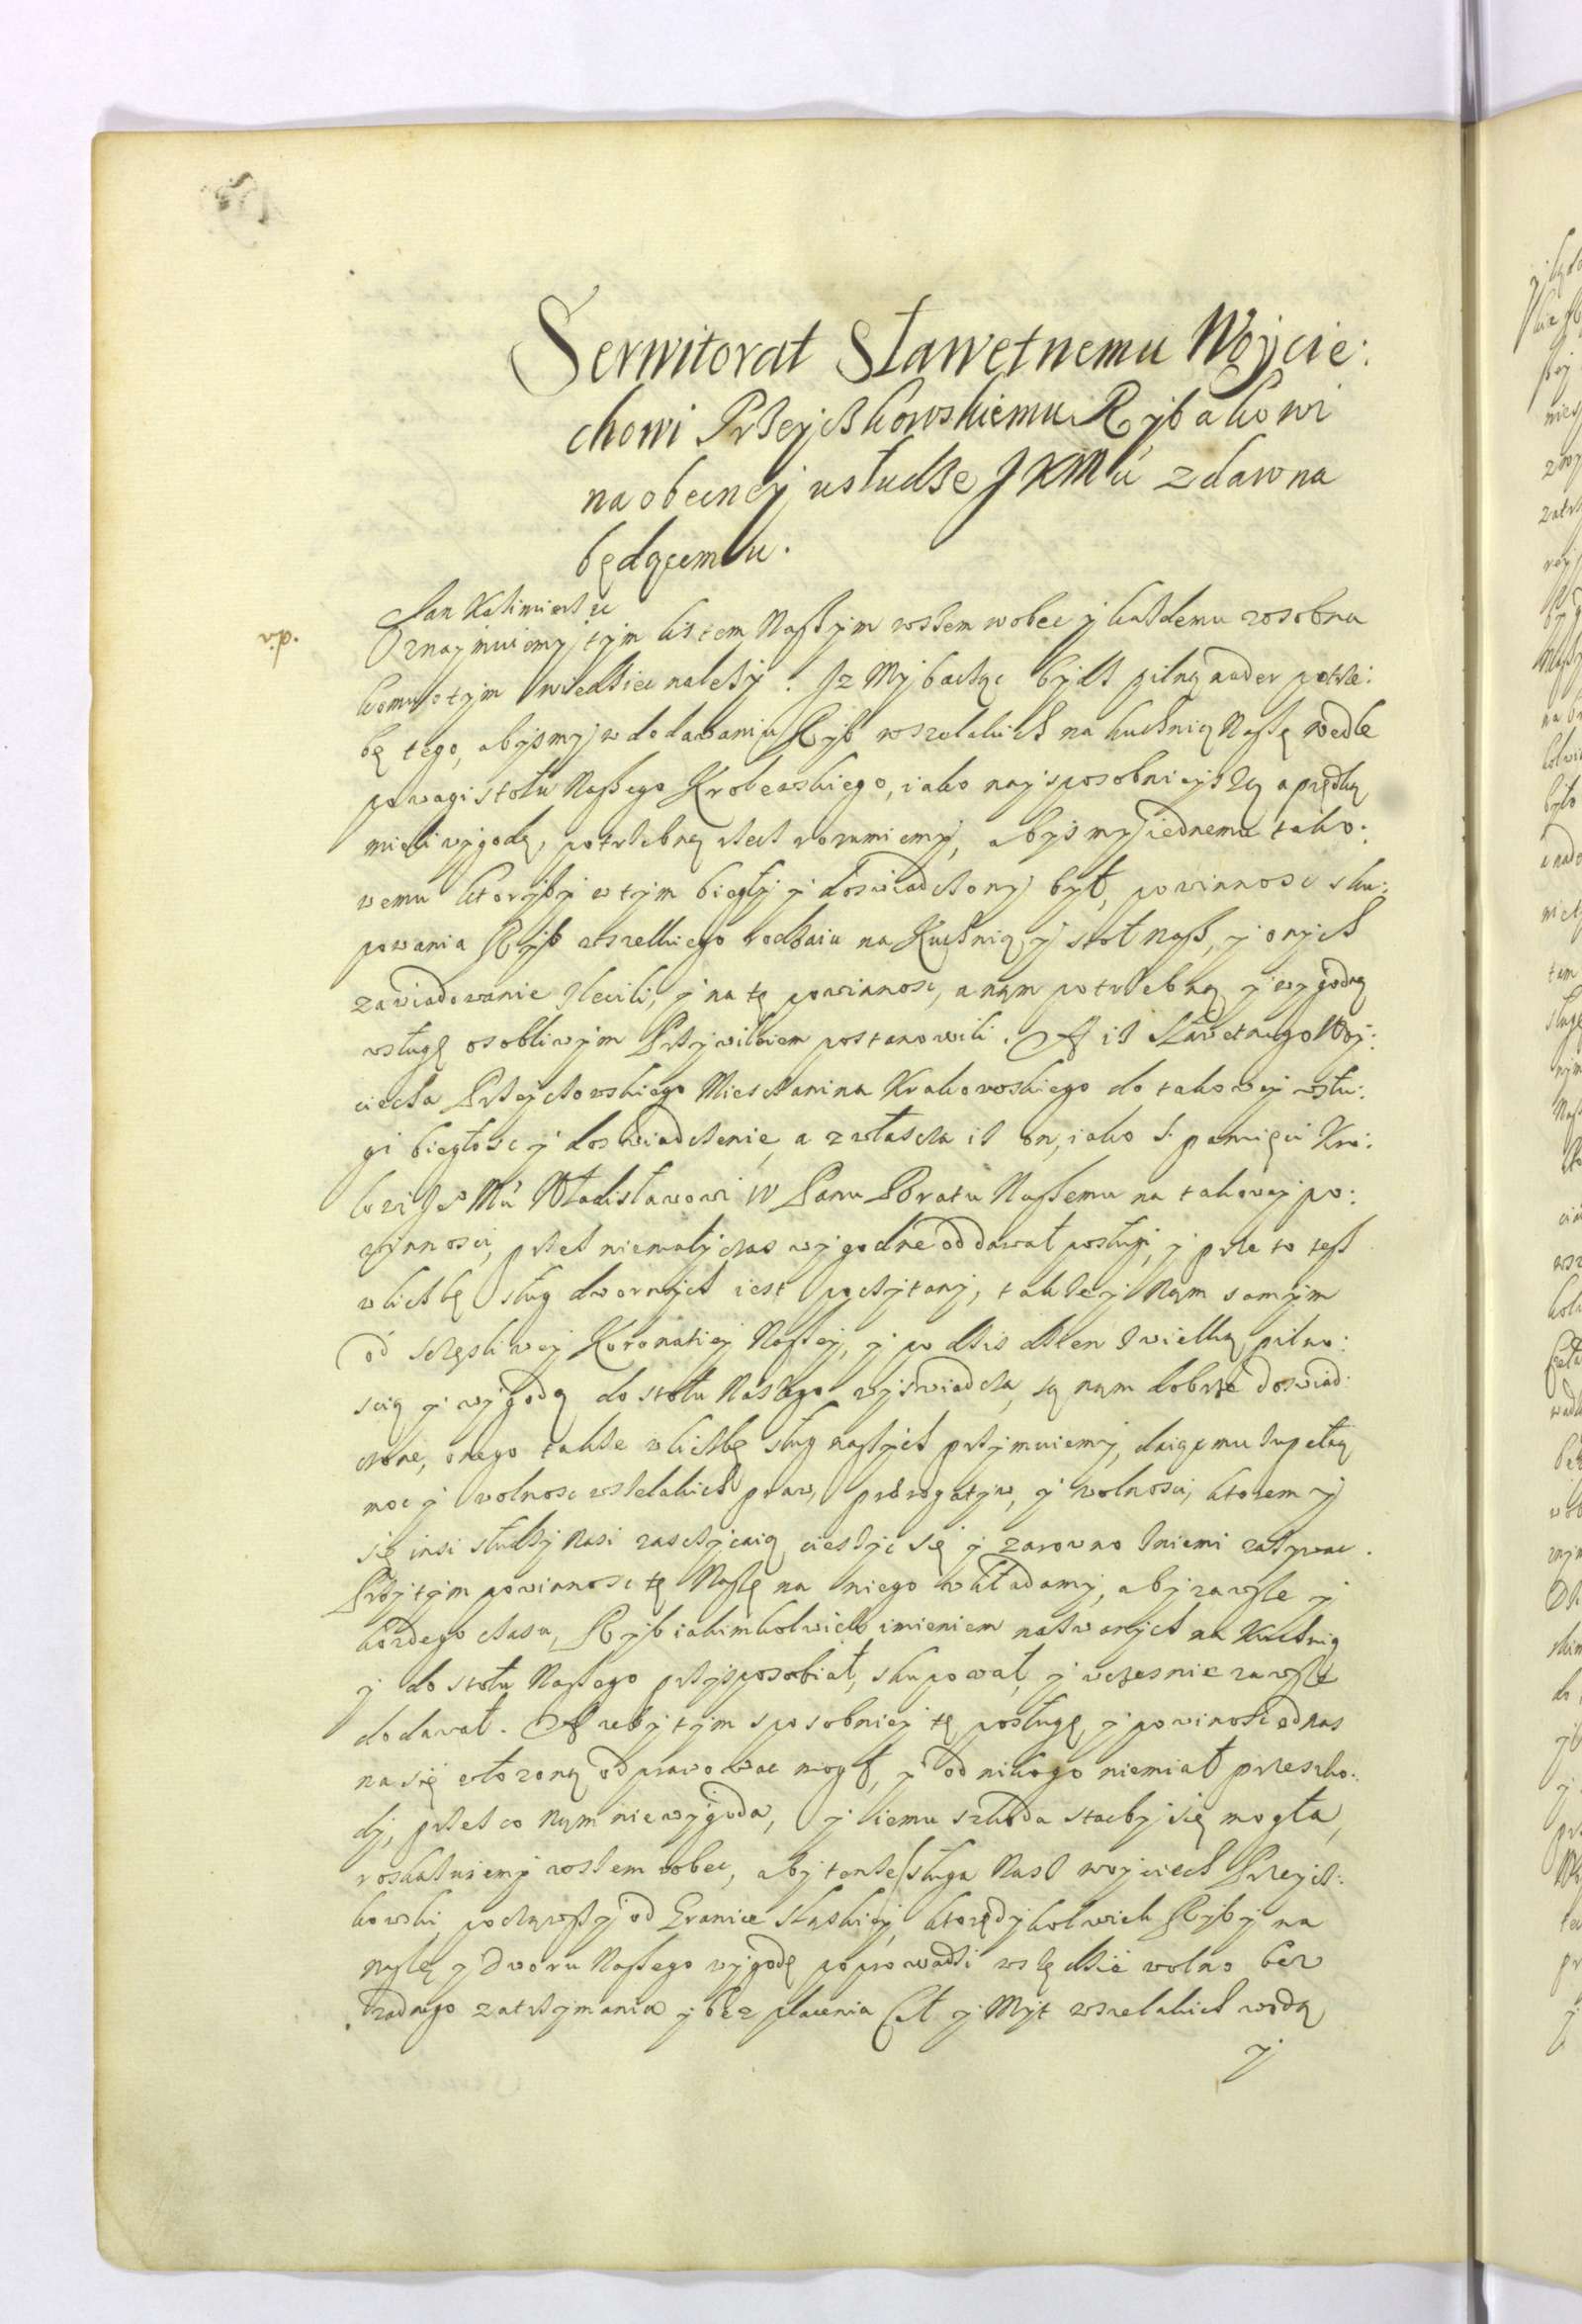 Serwitorat Sławetnemu Woycie:
chowi Przeyczkowskiemu Rybakowi
na obecney usłudze JKMći zdawna
będącemu.
Jan Kazimierz etc
Oznaymuiemy tym listem Naszym wszem wobec y każdemu zosobna
komu o tym wiedziec należy. Iz My bacząc bydź pilną nader potrze:
bę tego, abysmy w dodawaniu Ryb wszelakich na kuchnią Naszę wedle
powagi stołu Naszego Krolewskiego, iako naysposobnieyszą a prędką
mieli wygodę, potrzebną rzecz rozumiemy, abysmy iednemu tako:
wemu ktoryby w tym biegły y doswiadczony był, powinnosc sku:
powania Ryb wszelkiego rodzaiu na Kuchnią y stoł nasz, y onych
zawiadowanie zlecili, y na tę powinnosc, a nąm potrzebną y wygodną
usługę osobliwym Przywileiem postanowili. A iż Sławetnego Woy:
ciecha Przeyczkowskiego Miesczanina Krakowskiego do takowey usłu:
gi biegłosc y doswiadczenie, a zwłascza iż on, iako S. pamięci Kro:
lowi Je° Mći Władisławowi IV Panu Bratu Naszemu na takowey po:
winnosci, przez niemały czas wygodne oddawał posługi, y prze to też
w liczbę sług dwornych iest poczytany, także y Nąm samym
od sczęsliwey Koronatiey Naszey, y po dzis dzien z wielką pilno:
scią y wygodą do stołu Naszego wyswiadcza, są nąm dobrze doswiad:
czone, onego także w liczbę sług naszych przymuiemy, daiąc mu zupełną
moc y wolnosc wszelakich praw, prerogatyw, y wolnosci, ktoremi
się insi słudzy Nasi zasczycaią cieszyc się y zarowno z niemi zażywac.
Przytym powinnosc tę Naszę na niego wkładamy, aby zawsze y
każdego czasu, Ryb iakimkolwiek imieniem nazwanych na Kuchnią
y do stołu Naszego przysposobiał, skupował, y wczesnie zawsze
dodawał. A zeby tym sposobniey tę posługę, y powinosc od nas
na się włozoną odprawowac mogł, y od nikogo niemiał przeszko:
dy, przez co Nąm niewygoda, y iemu szkoda stacby się mogła,
roskazuiemy wszem wobec, aby tenże sługa Nasz woyciech Przeycz:
kowski, począwszy od Granice Sląskiey, ktorędykolwiek Ryby na
naszę y Dworu Naszego wygodę poprowadzi wszędzie wolno bez
zadnego zatrzymania y bez płacenia Ceł y Myt wszelakich wodą
y